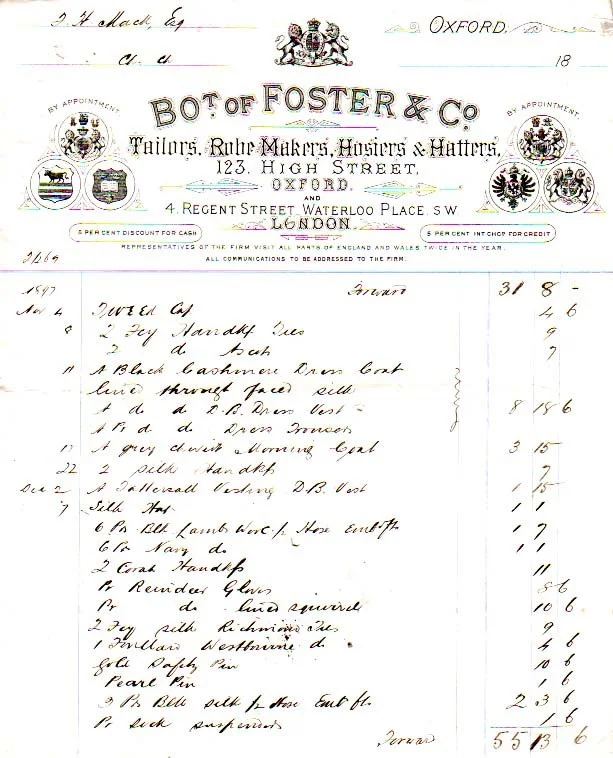 Mack, Esq
OXFORD.
Ch Ch
18
BOT. OF FOSTER & CO
BY APPOINTMENT.
BY APPOINTMENT.
Tailors, Robe Makers, Hosiers & Hatters,
123. HIGH STREET,
OXFORD.
AND
4. REGENT STREET, WATERLOO PLACE. S.W
LONDON.
5 PER CENT DISCOUNT FOR CASH
5 PER CENT INT CHGD FOR CREDIT
REPRESENTATIVES OF THE FIRM VISIT ALL PARTS OF ENGLAND AND WALES TWICE IN THE YEAR.
ALL COMMUNICATIONS TO BE ADDRESSED TO THE FIRM.
1897 Forward 31 8 -
Nov 4 Tweed Cap 4 6
8 2 Fcy Handkf Ties 9
2 do 7
11 A Black Cashmere Dress Coat
lined through faced silk
A do do D.B. Dress Vest 8 18 6
A Pr do do Dress Trousers
A grey cheviot Morning Coat 3 15
22 2 silk Handkfs 7
Dec 2 A Tattersall Vesting D.B. Vest 1 15
7 Silk Hat 1 1
6 Prs Blk Lambs Wool Hose 1 7
6 Prs Navy do 1 1
2 Corah Handkfs 11
Pr Reindeer Gloves 8 6
Pr do lined squirrel 10 6
2 Fcy silk Richmond Ties 9
1 Foullard Westbourne do 4 6
Gold Safety Pin 10 6
Pearl Pin 1 6
3 Prs Blk silk Hose 2 3 6
Pr sock suspenders 1 6
Forward 55 13 6